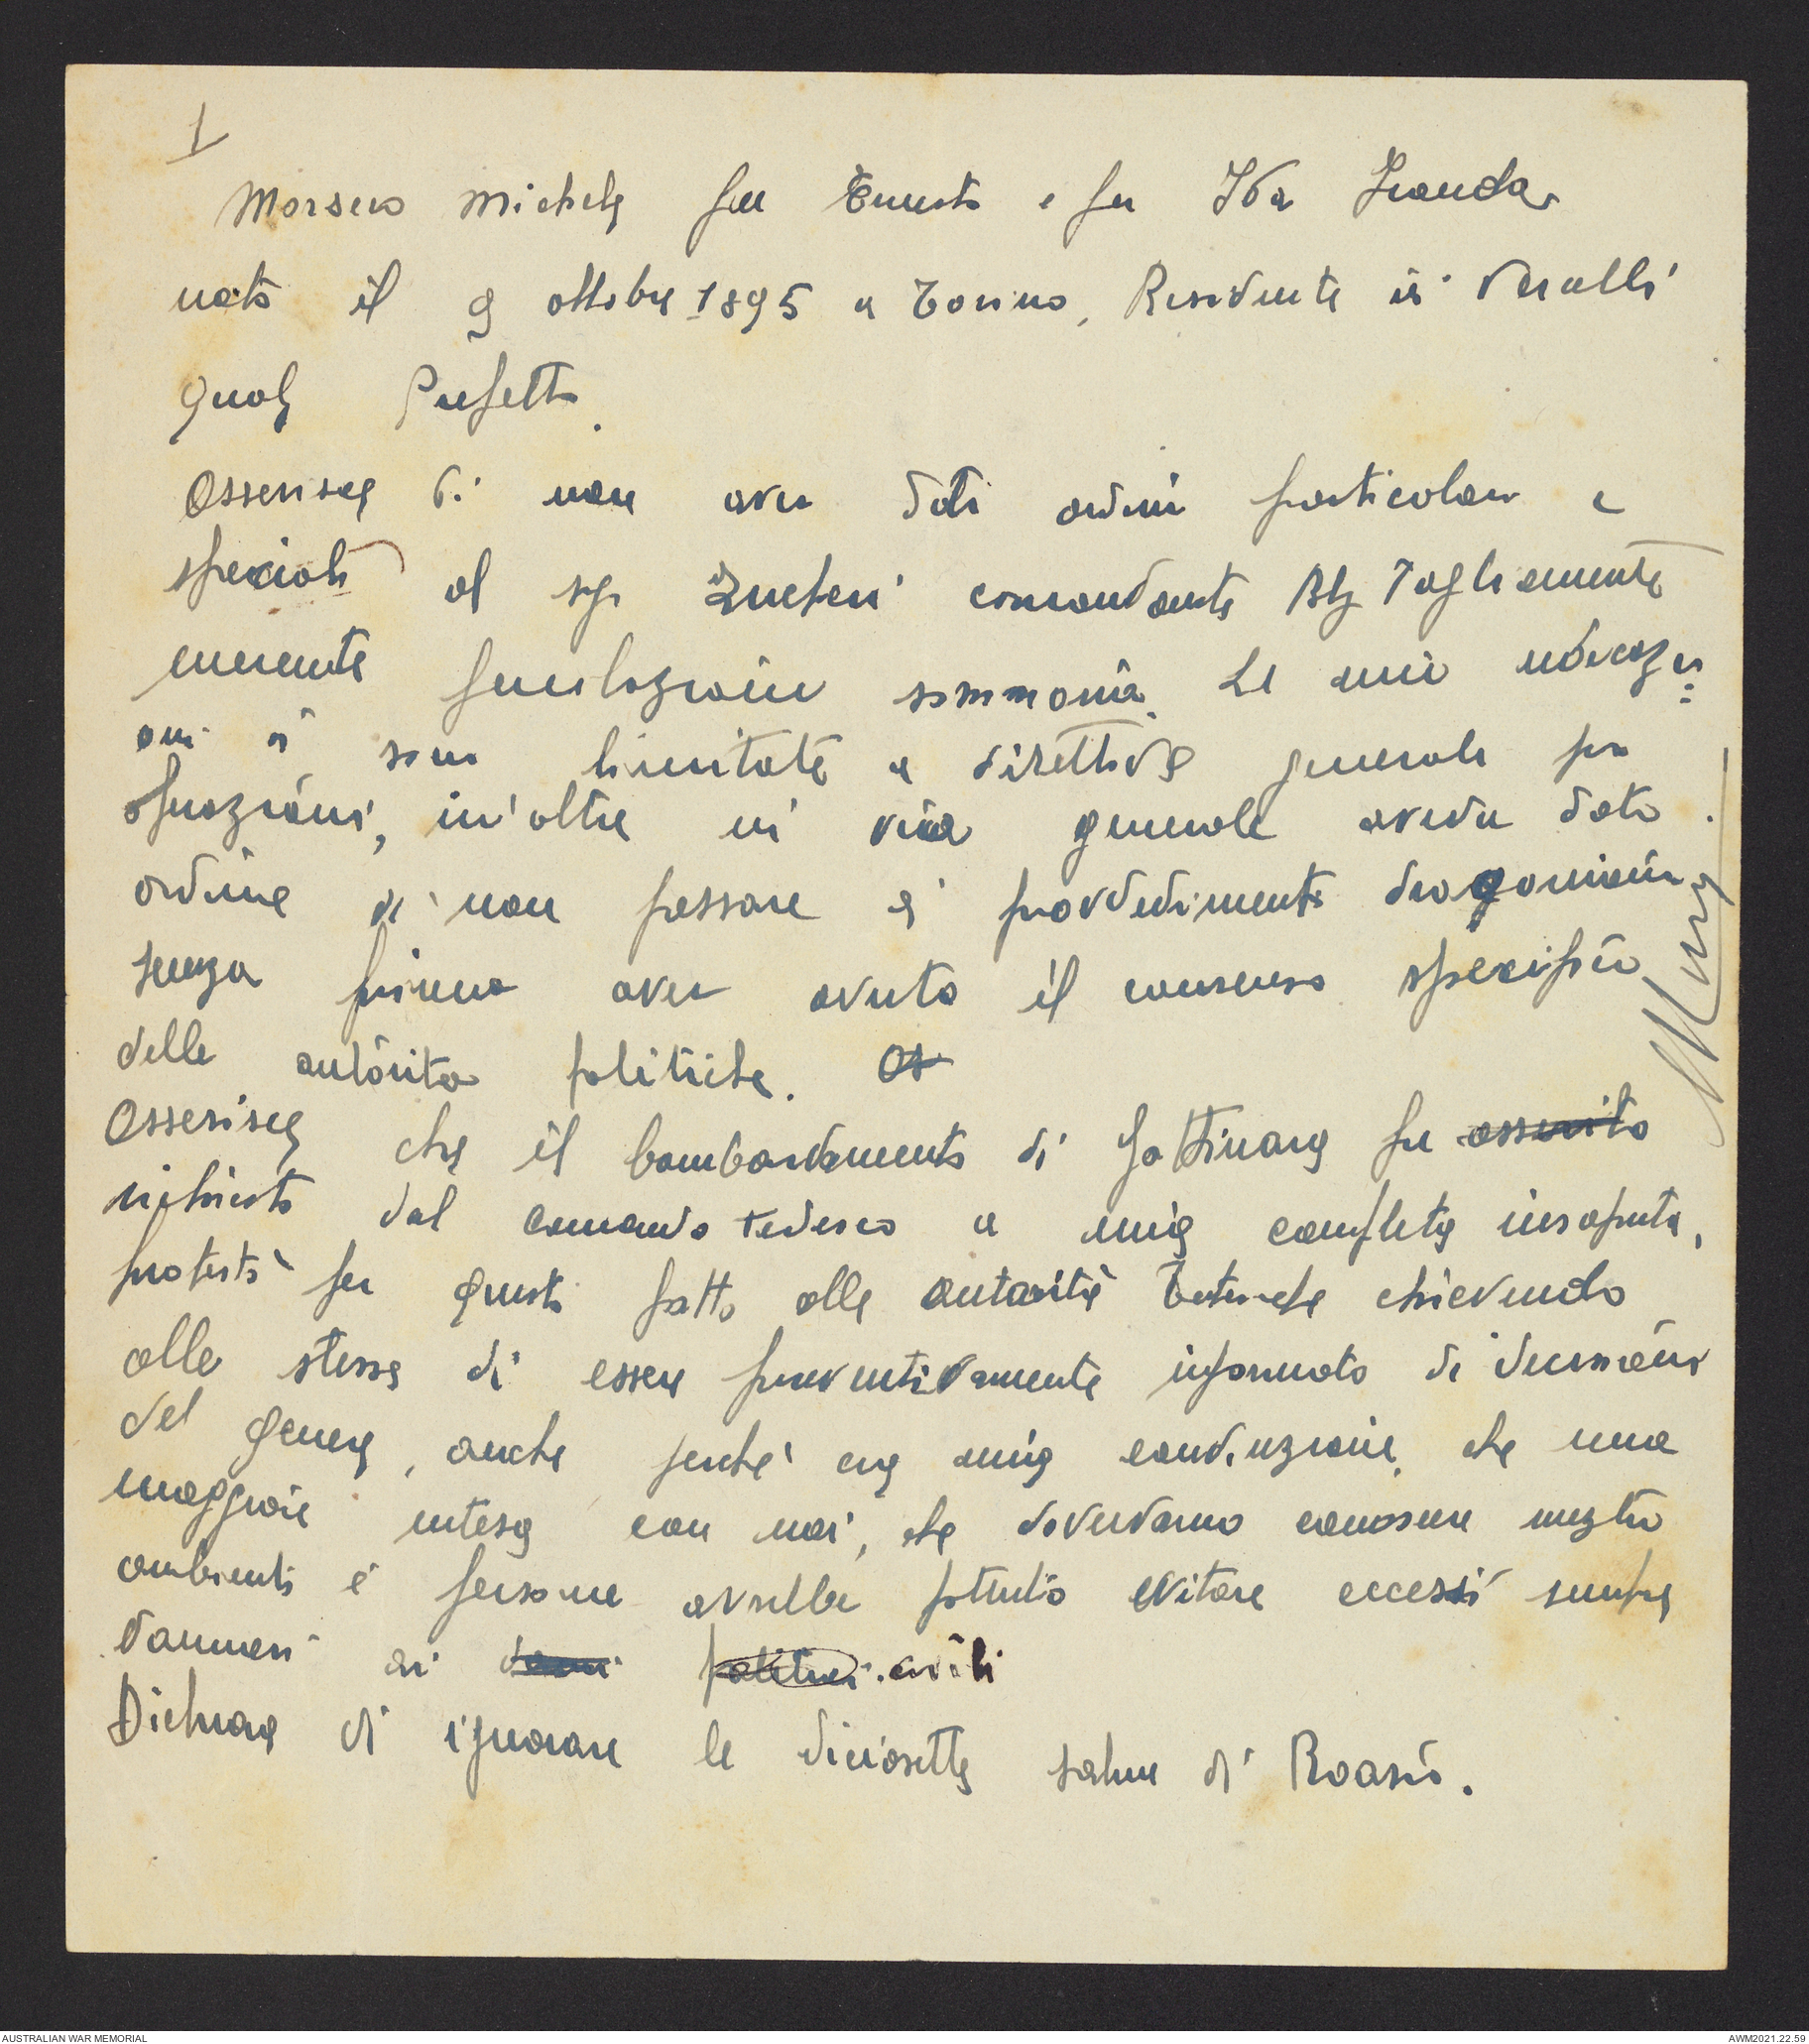 1
Morsero Michele fu Ernesto e fu Ida
nato il 9 ottobre 1895 a Torino, Residente in Vercelli
quale Prefetto.
Asserisce di non aver dati ordini particolari e
speciali al sig Zuccheri comandante Btg Tagliamento
inerente fucilazioni sommarie. Le mie indicazi=
oni si sono limitate a direttive generali per
operazioni, in'oltre in via generale avevo dato
ordine di non passare a provvedimenti draconiani
senza prima aver avuto il consenso specifico
delle autorita politiche. As
Asserisce che il bombardamento di Gattinara fu asserito
richiesto dal comando tedesco a mia completa insaputa,
protestò per questo fatto alle autorità Tedesche chiedendo
alle stesse di essere preventivamente informato di decisioni
del genere, anche perché era mia convinzione che una
maggiore intesa con noi, che dovevamo conoscere meglio
ambienti e persone avrebbe potuto evitare eccessi sempre
dannosi ai danni politici civili
Dichiara di ignorare le diciasette salme di Roasio.
AUSTRALIAN WAR MEMORIAL
AWM2021.22.59